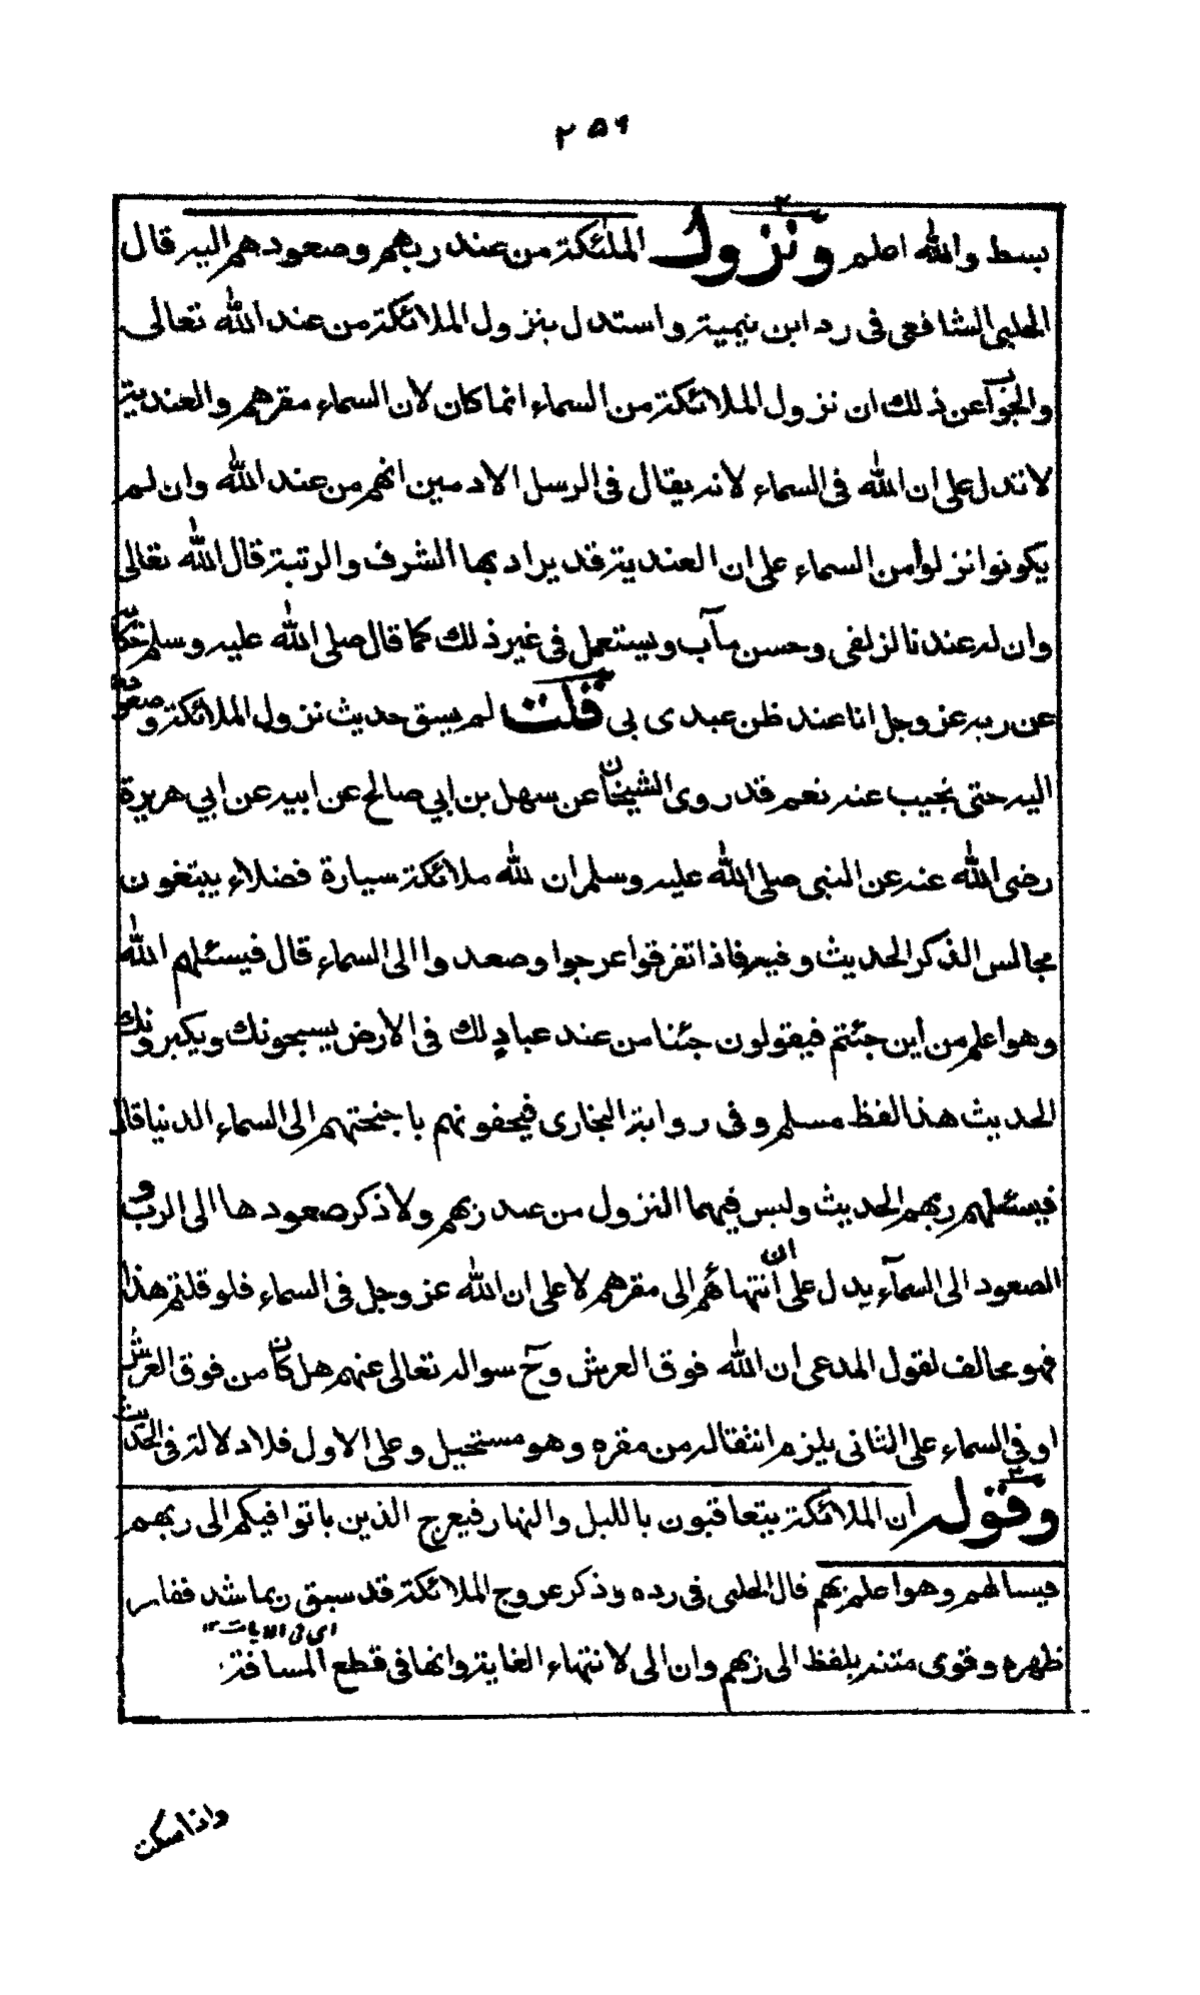 ٢٥٦
بسط والله اعلم ونزول الملئكة من عند ربهم وصعودهم اليه قال
الحلبي الشافعي في رد ابن تيمية واستدل بنزول الملائكة من عند الله تعالى
والجواب عن ذلك ان نزول الملائكة من السماء انما كان لان السماء مقرهم والعندية
لا تدل على ان الله في السماء لانه يقال في الرسل الادمين انهم من عند الله وان لم
يكونوا نزلوا من السماء على ان العندية قد يراد بها الشرف والرتبة قال الله تعالى
وان له عندنا لزلفى وحسن مآب ويستعمل في غير ذلك كما قال صلى الله عليه وسلم حكاية
عن ربه عز وجل انا عند ظن عبدى بى قلت لم يسق حديث نزول الملائكة وصعودهم
اليه حتى نجيب عنه نعم قد روى الشيخان عن سهل بن ابي صالح عن ابيه عن ابي هريرة
رضى الله عنه عن النبى صلى الله عليه وسلم ان لله ملائكة سيارة فضلاء يبتغون
مجالس الذكر الحديث وفيه فاذا تفرقوا عرجوا وصعدوا الى السماء قال فيسئلهم الله
وهو اعلم من أين جئتم فيقولون جئنا من عند عباد لك فى الارض يسبحونك ويكبرونك
الحديث هذا لفظ مسلم وفى رواية البخارى فيحفونهم باجنحتهم الى السماء الدنيا قال
فيسئلهم ربهم الحديث وليس فيهما النزول من عند ربهم ولا ذكر صعودها الى الرب و
الصعود الى السمآء يدل على ان انتهائهم الى مقرهم لا على ان الله عز وجل فى السماء فلو قلتم هذا
فهو مخالف لقول المدعى ان الله فوق العرش وح سواله تعالى عنهم هل كان من فوق العرش
او في السماء على الثانى يلزم انتقاله من مقره وهو مستحيل وعلى الاول فلا دلالة فى الحديث
وقوله أن الملائكة يتعاقبون بالليل والنهار فيعرج الذين باتوا فيكم الى ربهم
فيسالهم وهو اعلم بهم قال الحلبى فى رده وذكر عروج الملائكة قد سبق ربما شد فقار
اى فى الايات ١٢
ظهره وقوى متنه بلفظ الى ربهم وان الى لانتهاء الغاية وانها فى قطع المسافة
واذا سكت